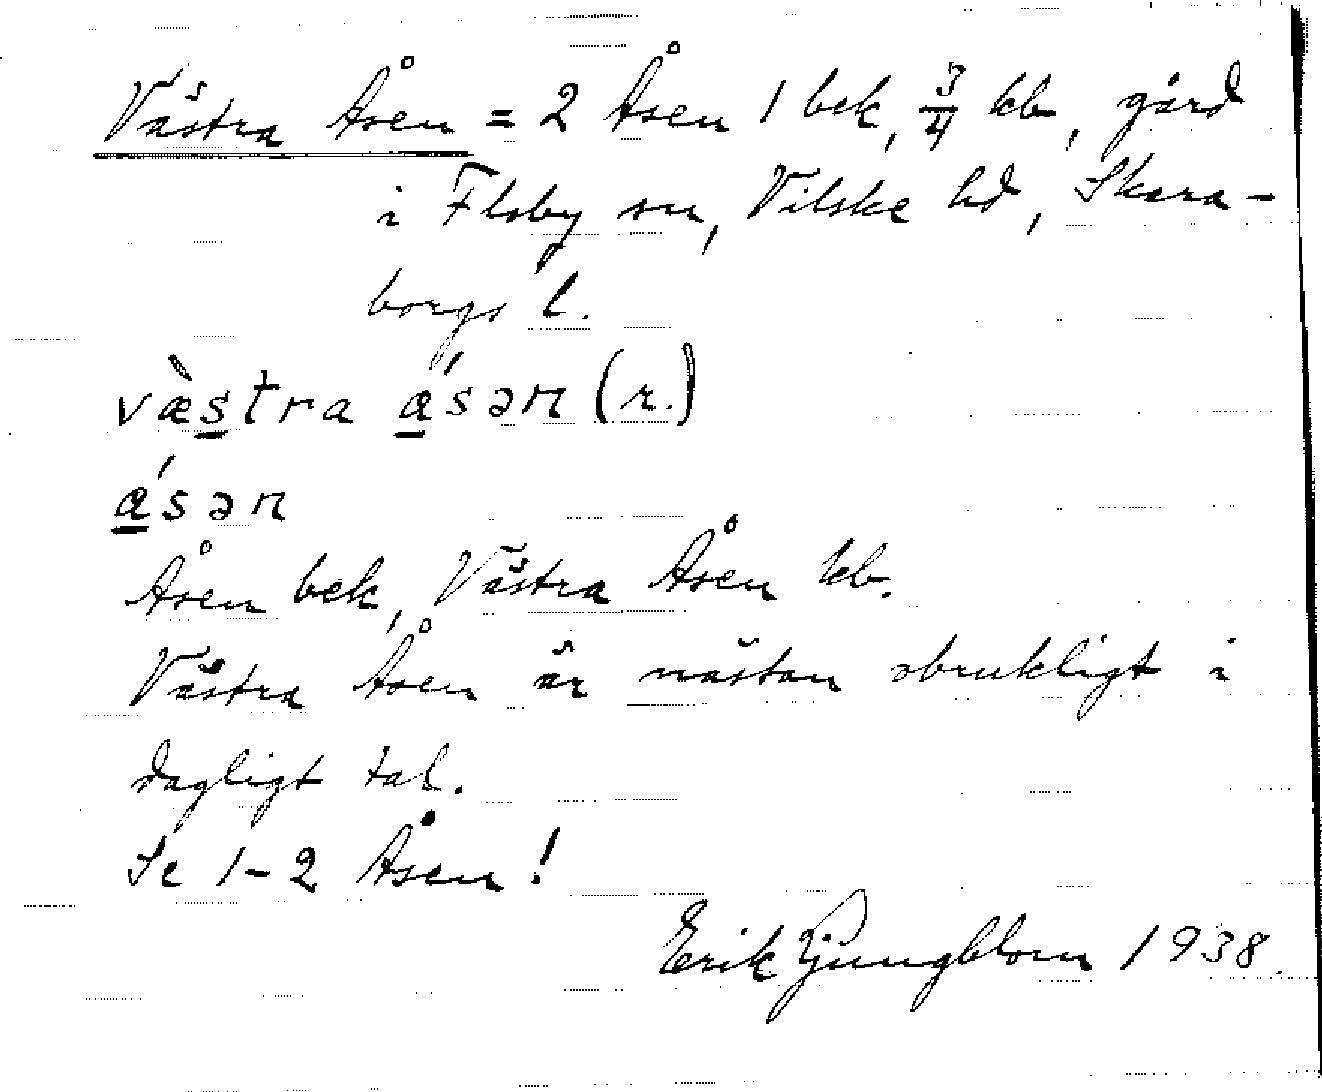 Västra Åsen = 2 Åsen 1 bek, 3/4 kb, gård
i Floby sn, Vilske hd, Skara-
borgs l.
væ̀stra á̱sən (r.)
á̱sən
Åsen bek, Västra Åsen kb.
Västra Åsen är nästan obrukligt i
dagligt tal.
Se 1-2 Åsen!
Erik Ljungblom 1938.